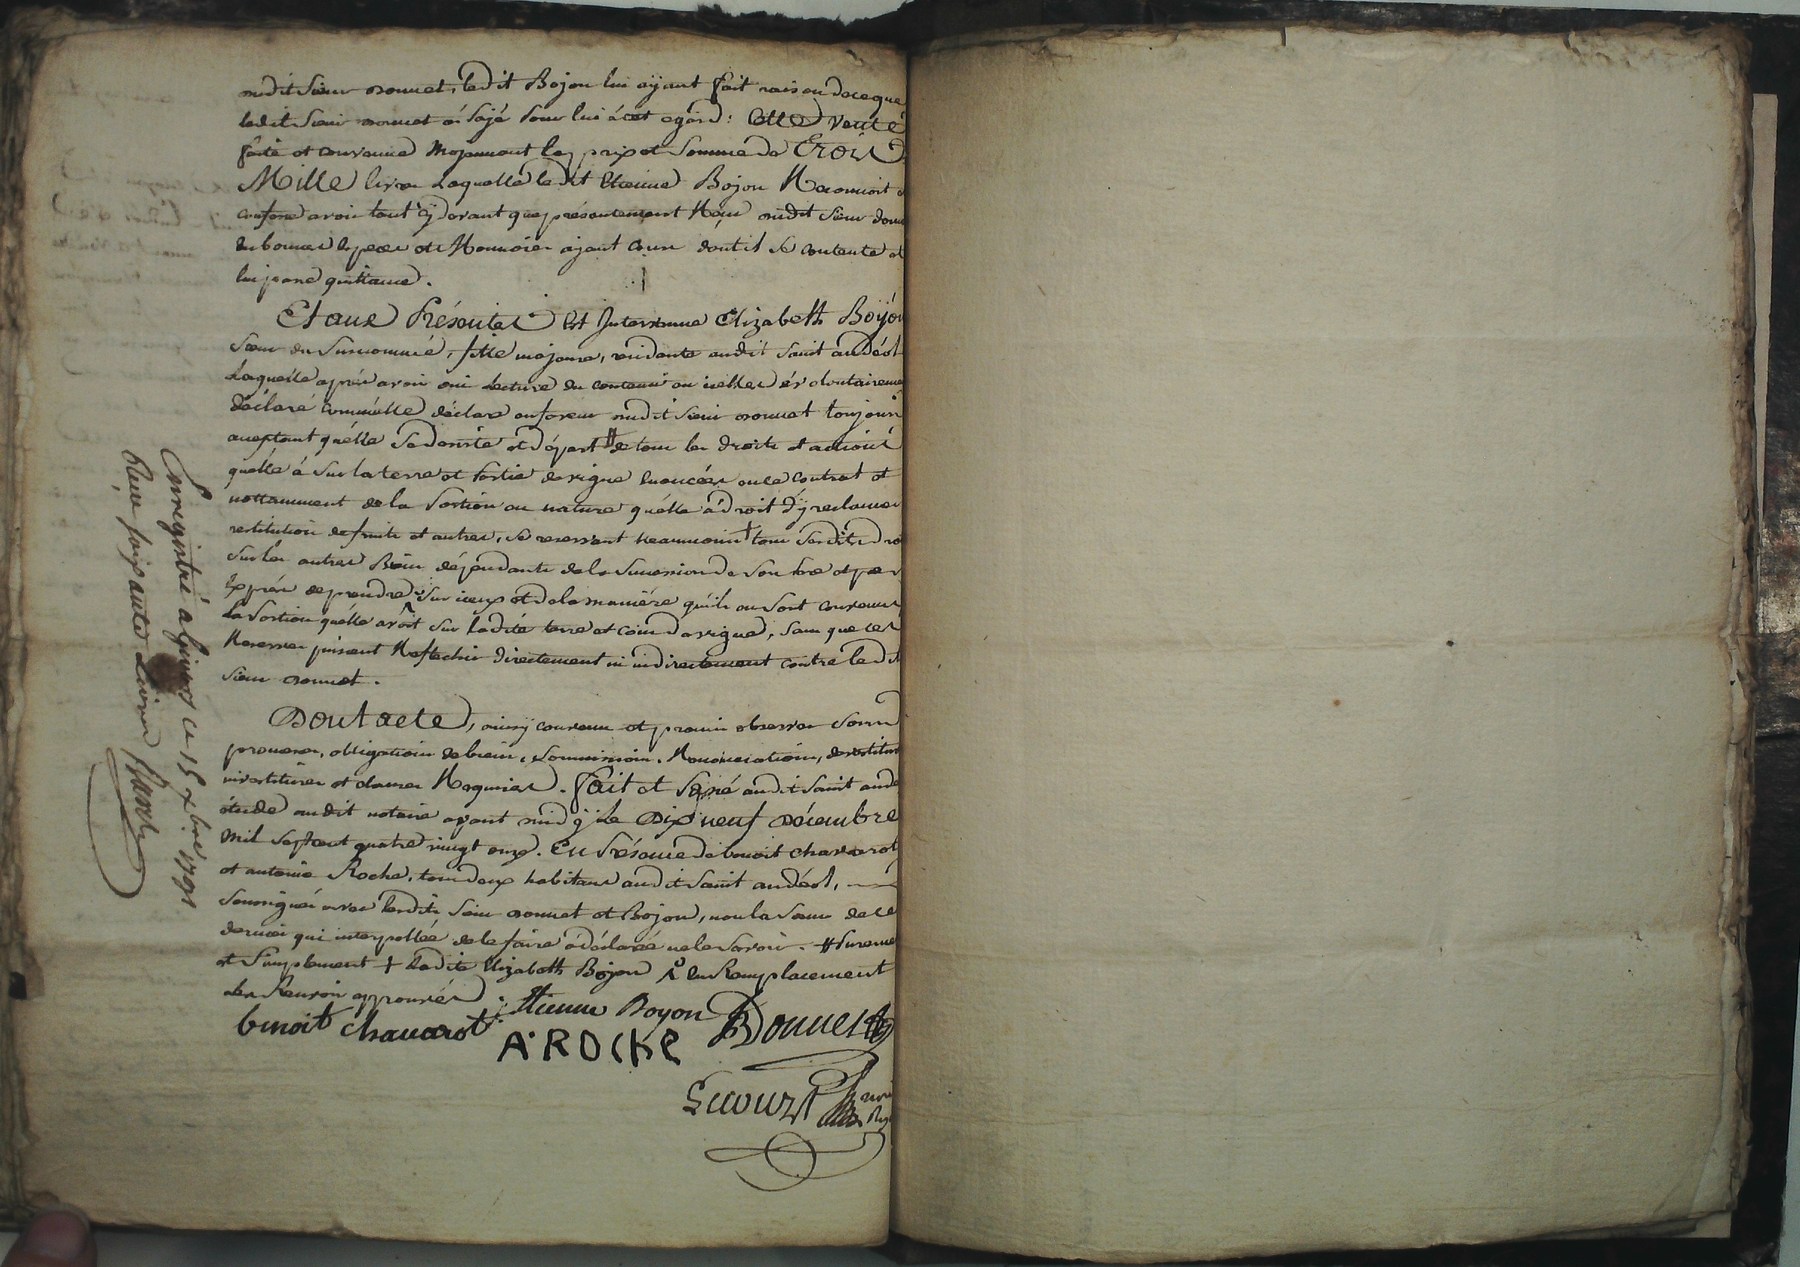 mudit sieur Donnet, ledit Bojon lui ayant fait raison de ce que
ledit sieur Donnet á Payé pour lui á cet egard: Cette vente
faite et convenue Moyennant le prix et Somme de Trois
Mille livres Laquelle ledit Etienne Bojon Reconnoit
confesse avoir tout cÿ devant que présentement Reçu mudit sieur Donn
en bonnes Especes et Monnoies ayant cours dont il se contente et
lui passe quittance.
Et aux Présentes Est Intervenue Elizabeth Boÿon
Soeur du Susnommé, fille majeure, residante audit Saint Andéol
Laquelle après avoir oui Lecture du contenu en icelles á volontaireme
déclaré comm'elle déclare en faveur mudit sieur Donnet toujours
aceptant qu'elle se desiste et départ # de tous les droits et actions
qu'elle á sur la terre et Partie de vigne enoncées en ce Contrat et
nottamment de la Portion en nature qu'elle á droit d'ÿ reclamer
restitution de fruits et autres, se reservant neanmoins + tous sesdits dro
sur les autres Biens dépendants de la Succession de son
Exprès de prendre sur iceux et de la maniére qu'ils en sont convenus
La Portion qu'elle avoit sur ladite terre et coin de vigne, sans que ces
Reserves puissent Reflechir directement ni indirectement contre ledit
sieur Donnet.
Dont acte, ainsy convenu et promis observer sous
obligations de biens, Soumissions, Renonciations, devestiture
investitures et clauses Requises. Fait et Passé audit Saint Ande
étude dudit notaire avant midÿ Le Dix neuf Décembre
Mil Sept cent quatre vingt onze. En Présence de benoit Chavarot
et antoine Roche, tous deux habitans audit Saint andéol,
Soussignés avec lesdits sieurs Donnet et Bojon, non la Soeur de ce
dernier qui interpellée de le faire á déclaré ne le Savoir. # Pureme
et Simplement + Ladite Elizabeth Bojon en Remplacement
des Renvois approuvés
Etienne Boyon
benoit Chavarot
A. ROCHE
Donnet
Enregistré a Givors ce 15 xbre 1791